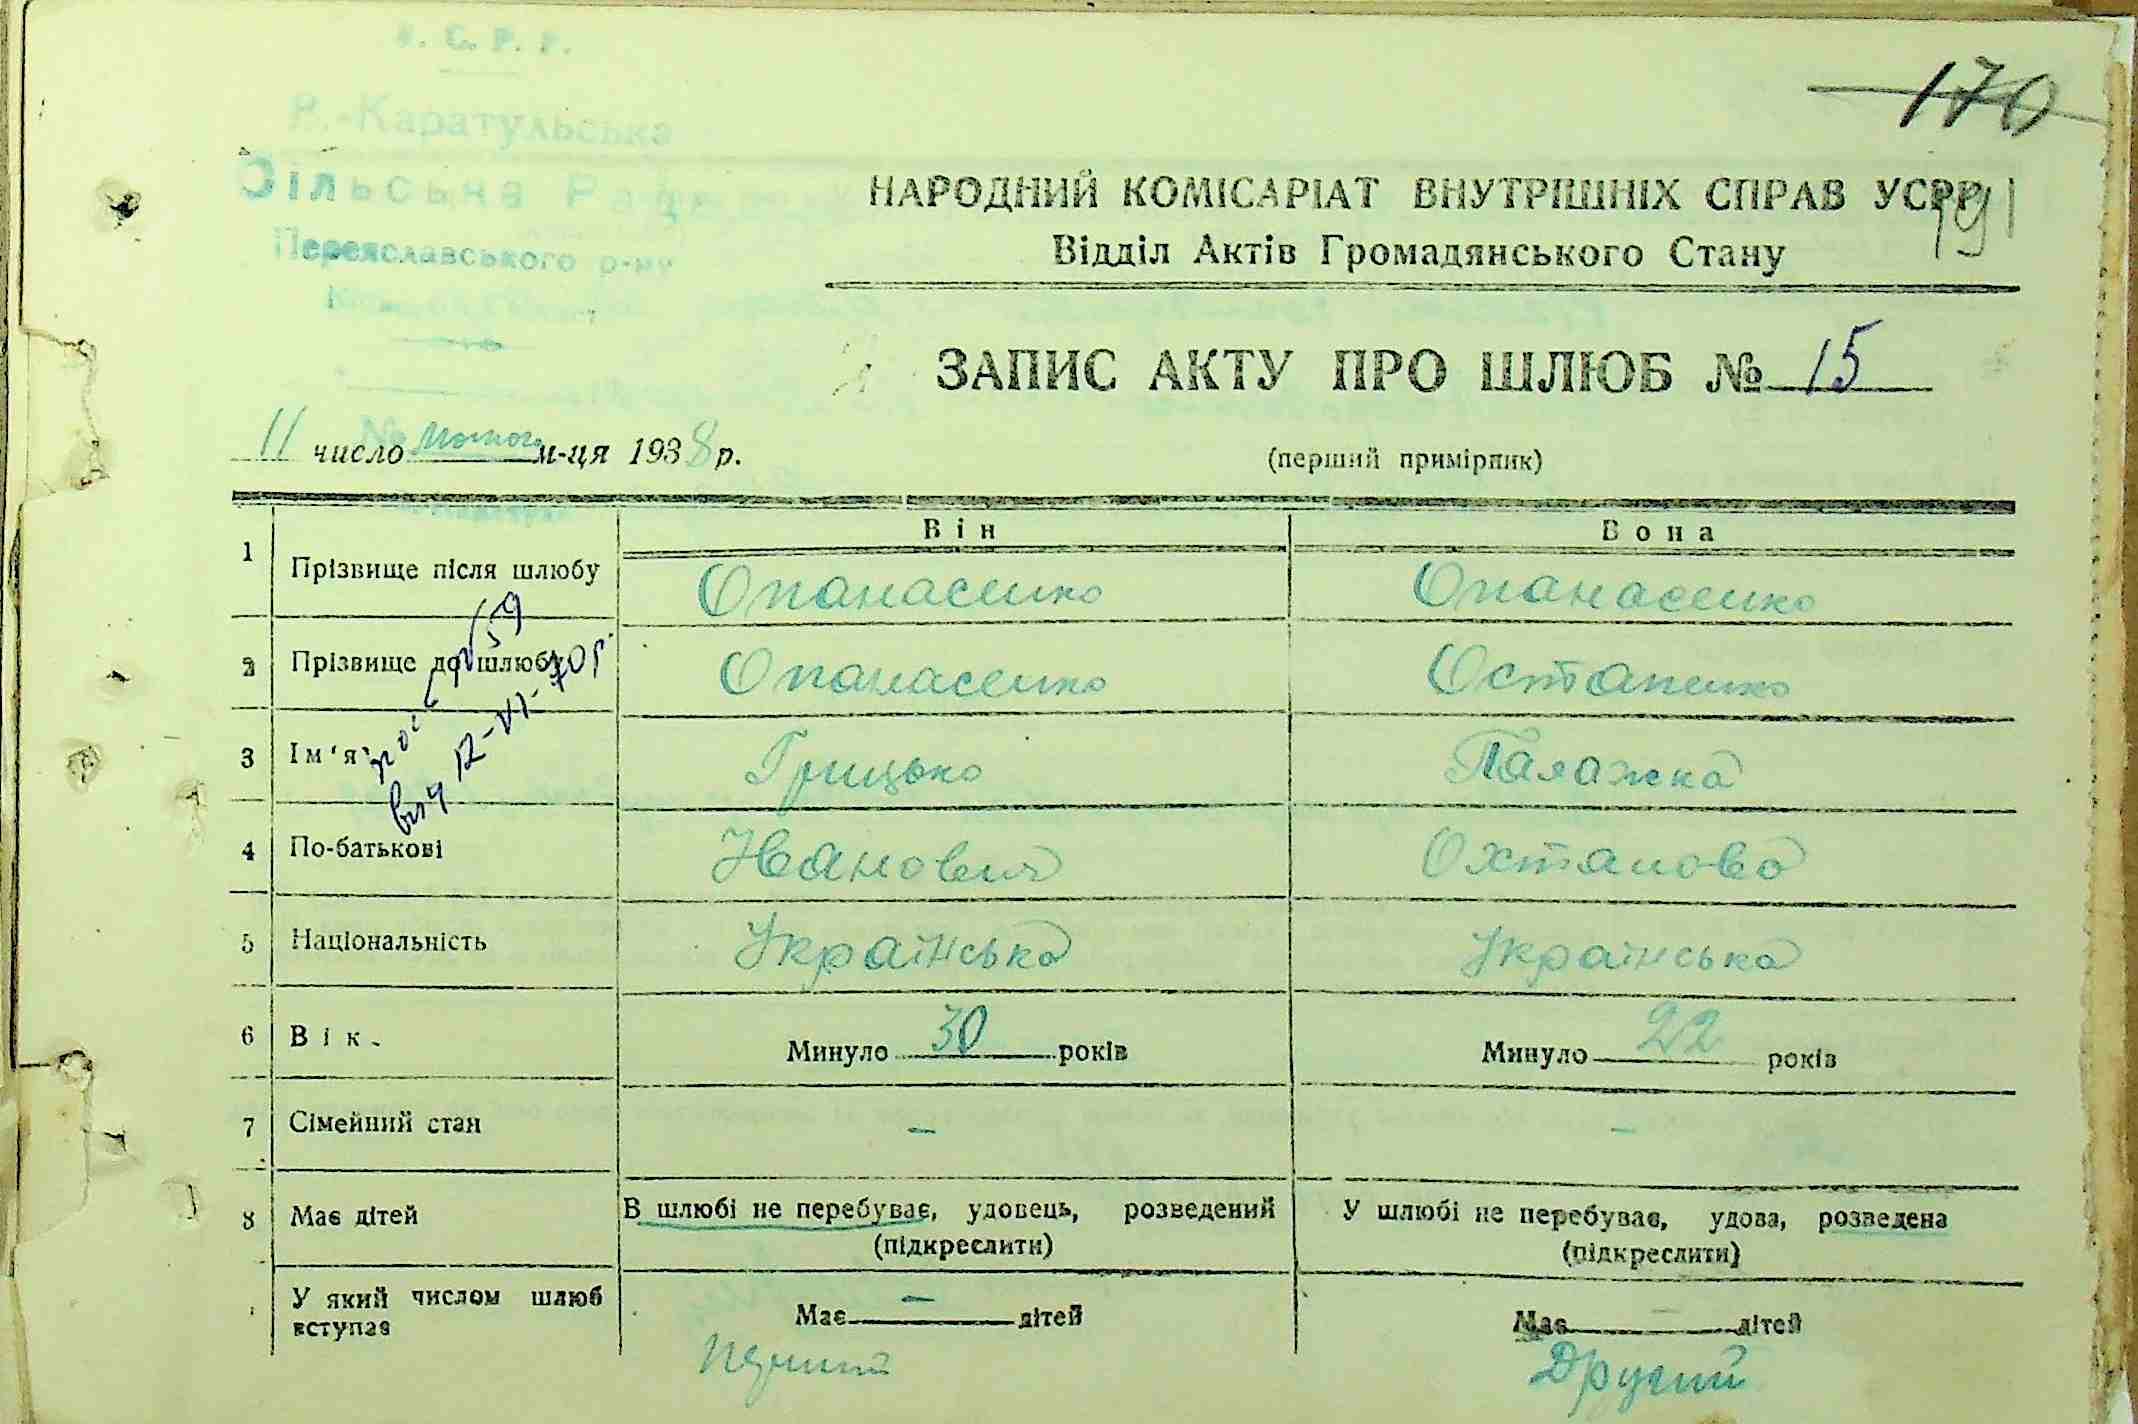 У. С. Р. Р.
В.-Каратульська
Сільська Рада
Переяславського р-ну
170
НАРОДНИЙ КОМІСАРІАТ ВНУТРІШНІХ СПРАВ УСРР
191
Відділ Актів Громадянського Стану
ЗАПИС АКТУ ПРО ШЛЮБ № 15
11 число лютого м-ця 1938 р.
(перший примірник)
Він Вона
1 Прізвище після шлюбу Опанасенко Опанасенко
2 Прізвище до шлюбу Опанасенко Остапенко
3 Ім'я Грицько Палажка
4 По-батькові Іванович Охтанова
5 Національність Українська Українська
6 Вік. Минуло 30 років Минуло 22 років
7 Сімейний стан — —
8 Має дітей В шлюбі не перебуває, удовець, розведений У шлюбі не перебуває, удова, розведена
(підкреслити) (підкреслити)
У який числом шлюб вступає Має — дітей Має — дітей
Перший Другий
12-VI-70р.